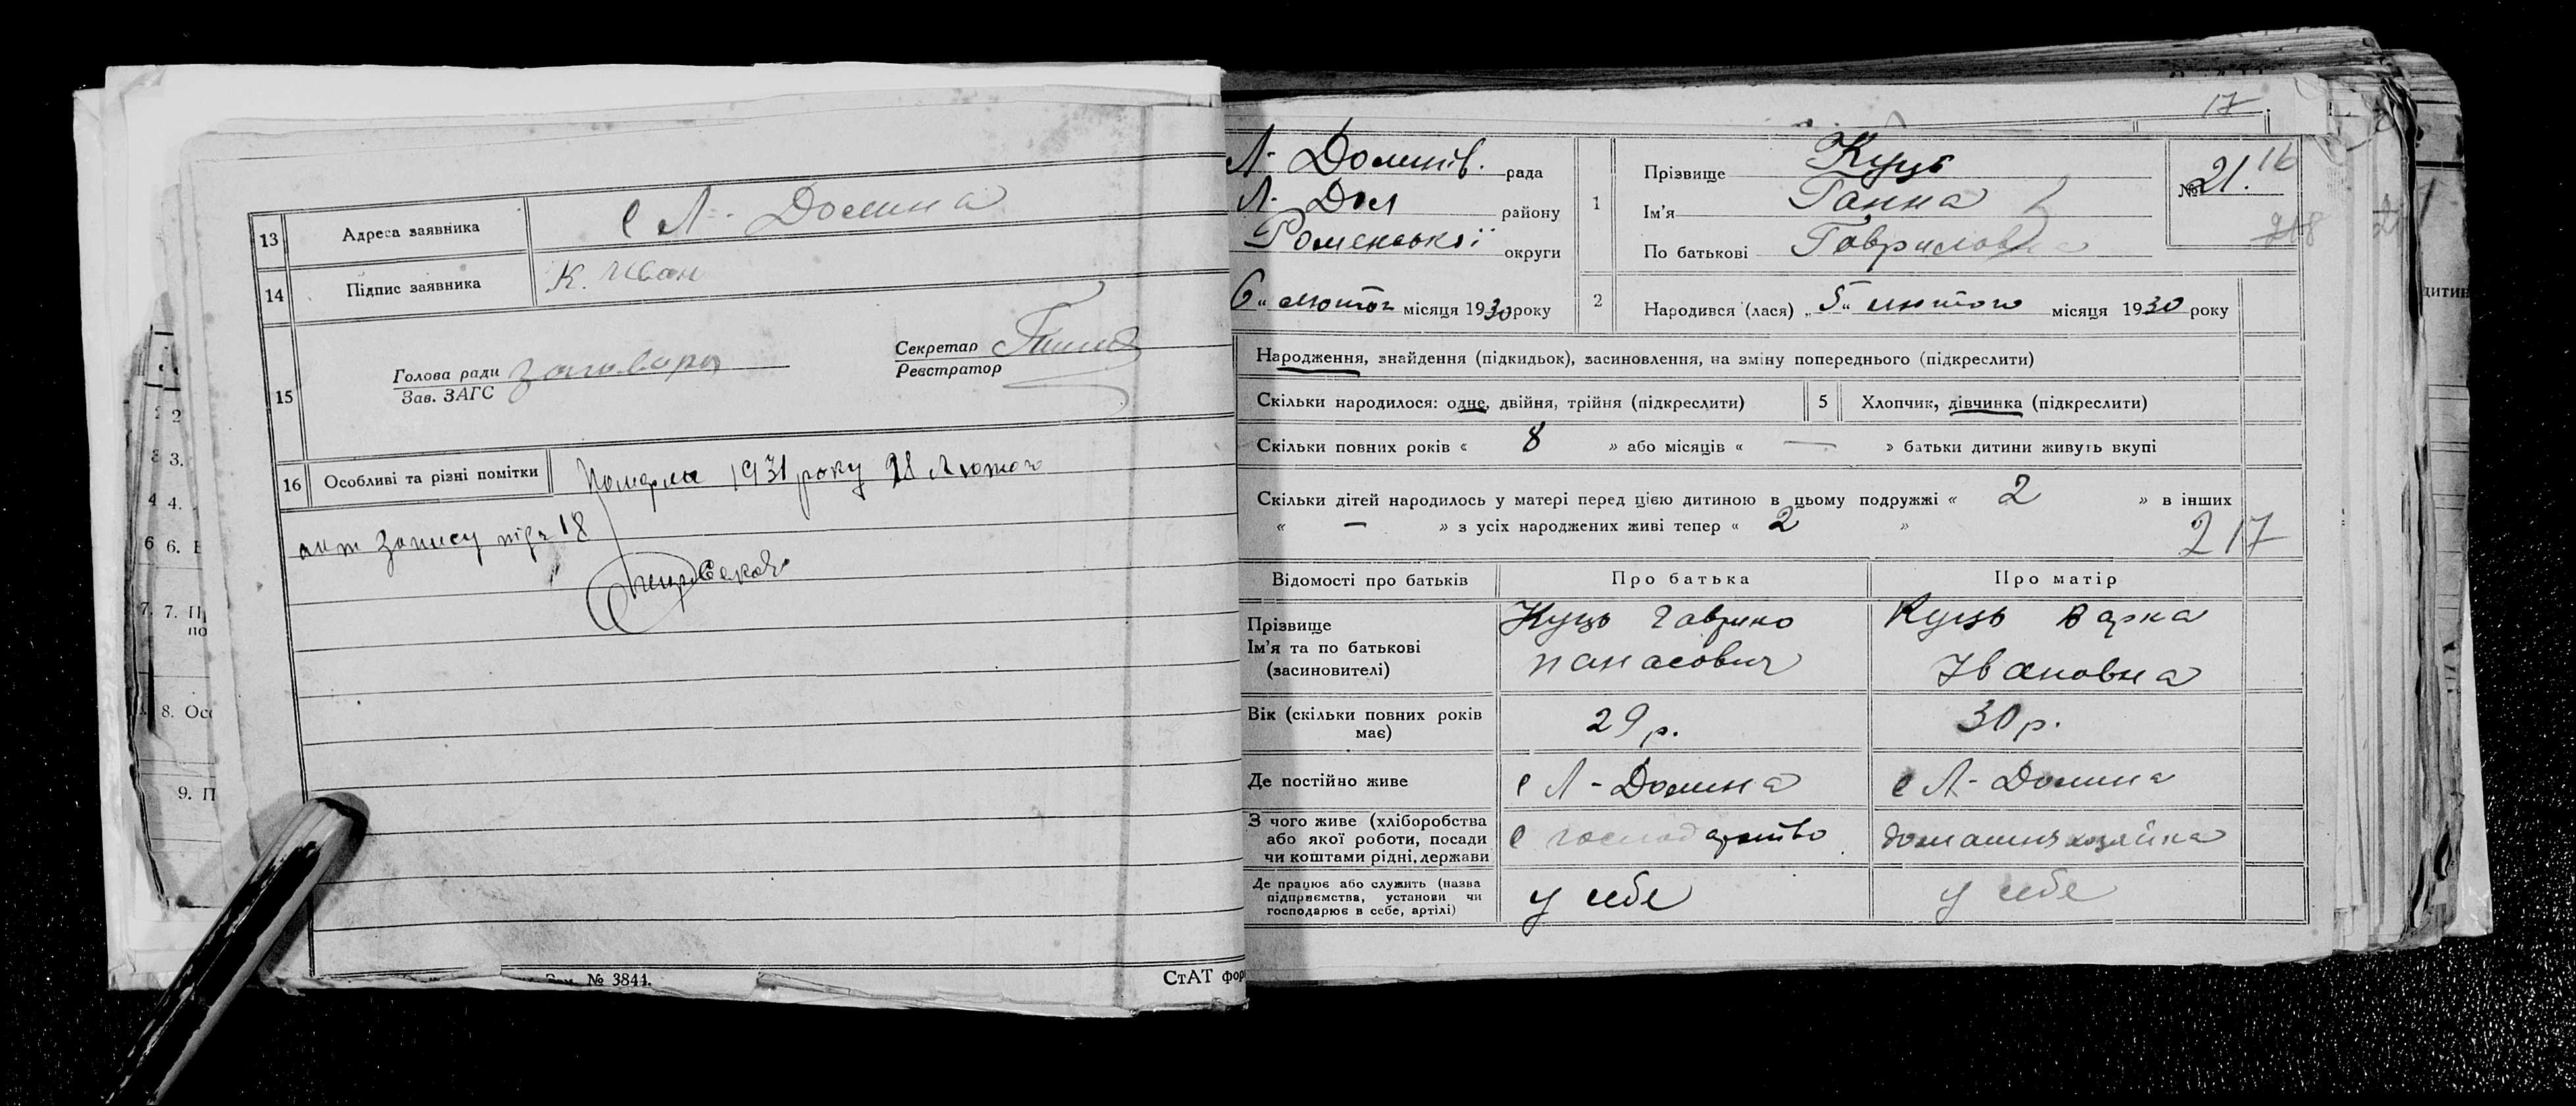 13 Адреса заявника с Л-Долина
14 Підпис заявника К. Иван
15
Голова ради
Зав. ЗАГС
Секретар
Реєстратор
16 Особливі та різні помітки Померла 1931 року 28 Лютого
акт запису під ч 18
№ 3844.
СтАТ фор
17
Л- Долинів. рада
Л- Дол району
Роменської округи
6 „ лютог місяця 1930 року
1 Прізвище Куць
Ім'я Ганна
По батькові Гавриловна
№ 21. 16
218
2 Народився (лася) „ 5 „ лютого місяця 1930 року
Народження, знайдення (підкидьок), засиновлення, на зміну попереднього (підкреслити)
Скільки народилося: одне, двійня, трійня (підкреслити) 5 Хлопчик, дівчинка (підкреслити)
Скільки повних років « 8 » або місяців « — » батьки дитини живуть вкупі
Скільки дітей народилось у матері перед цією дитиною в цьому подружжі « 2 » в інших
« — » з усіх народжених живі тепер « 2 »
217
Відомості про батьків Про батька Про матір
Прізвище
Ім'я та по батькові
(засиновителі)
Куць Гаврило
панасович
Куць Варка
Івановна
Вік (скільки повних років
має)
29 р.
30 р.
Де постійно живе с Л-Долина с Л-Долина
З чого живе (хліборобства
або якої роботи, посади
чи коштами рідні, держави
с господарство
домашня хозяйка
Де працює або служить (назва
підприємства, установи чи
господарює в себе, артілі)
у себе
у себе